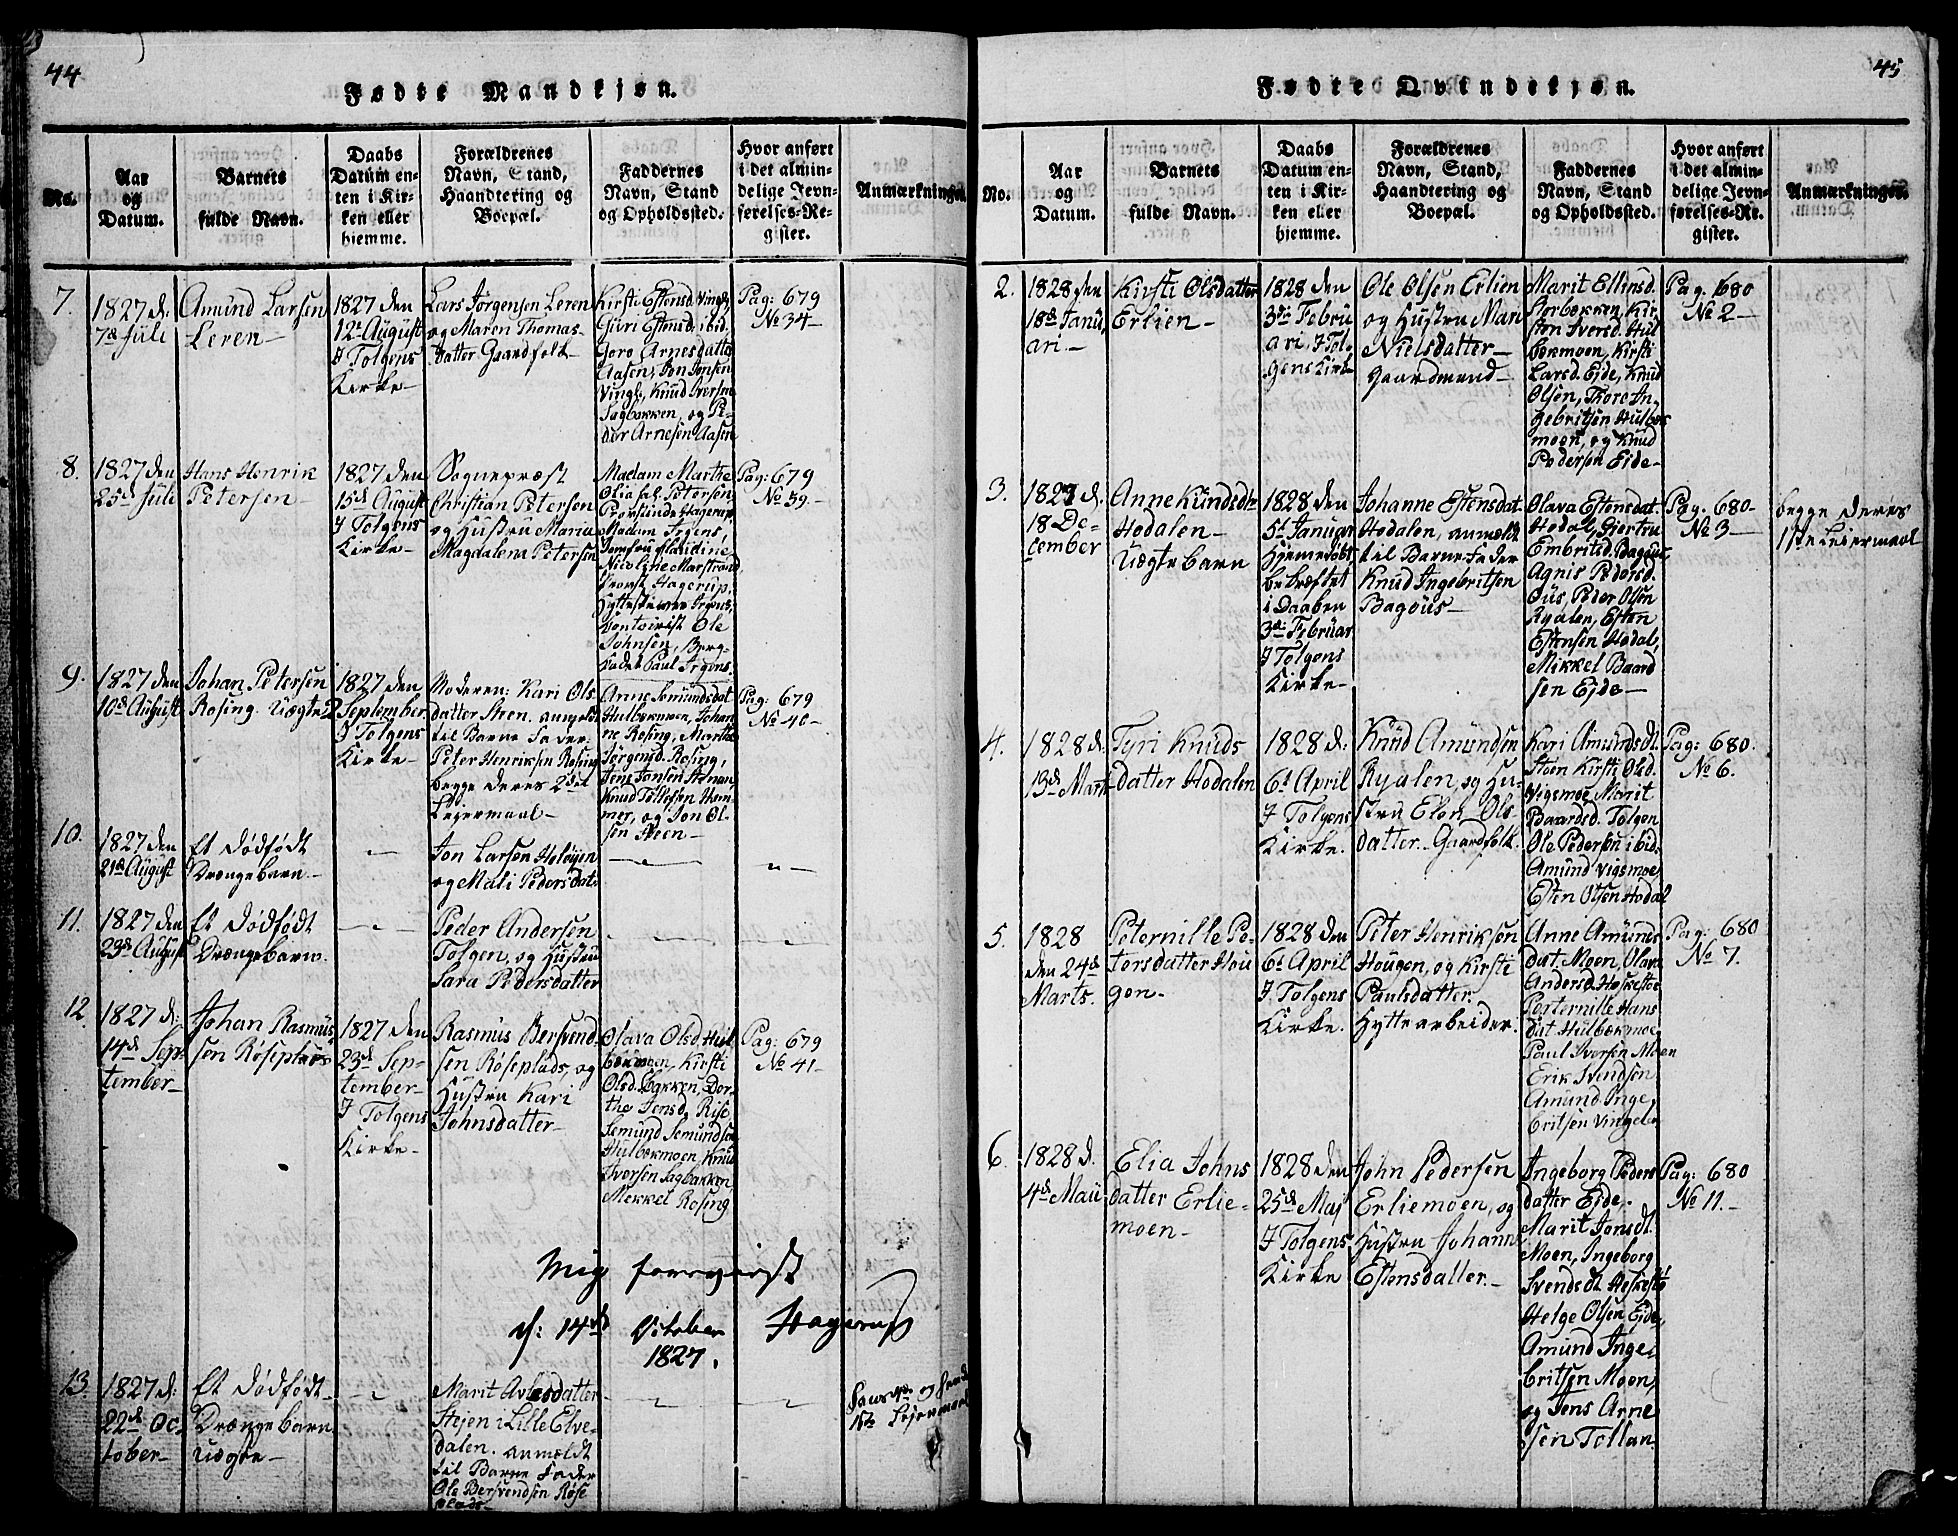 44
Fødte Mandkjøn.
No.
Aar
og
Datum.
Barnets
fulde Navn.
Daabs
Datum en-
ten i Kir-
ken eller
hiemme.
Forældrenes
Navn, Stand,
Haandtering og
Boepæl.
Faddernes
Navn, Stand
og Opholdssted.
Hvor anført
i det almin-
delige Jevn-
førelses-Re-
gister.
Anmærkninger.
7.
1827 d:
7de Juli
Amund Larsen
Leren
1827 den
12te August
I Tolgens
Kirke
Lars Jørgensen Leren
og Maren Thomas
datter Gaardfolk
Kirsti Estensd. Vingel,
Guri Estensd. ibid.
Goro Arnesdatter
Aasen, Jon Jonsen
Vingl, Knud Iversen
Sagbakken, og Pe-
der Arnesen Aasen
Pag: 679
No 34
8.
1827 den
25de Juli
Hans Henrik
Petersen
1827 den
15de August
I Tolgens
Kirke
Sognepræst
Christian Petersen
og Hustru Maria
Magdalena Petersen
Madam Marthe
Olia sal. Petersen,
Provstinde Hagerup,
Madam Irgens,
Jomfru Claudine
Nicoline Marstrand
Provst Hagerup,
Hytteskriver Irgens,
Ole
Johnsen, Berg-
kadet Paul Irgens.
Pag: 679
No 39
9.
1827 den
10de August
Johan Petersen
Rosing. Uægte
1827 den
2 September
I Tolgens
Kirke
Moderen: Kari Ols
datter Stren. anmeldt
til Barne Fader
Peter Henriksen Rosing
begge deres 2det
Leiermaal
Anne Semundsdat
Hulbekmoen, Johan
ne Rosing, Marthe
Jørgensd. Rosing,
Jens Jonsen
Knud Tollefsen Ham-
mer, og Jon Ol-
sen Neen
Pag: 679
No 40
10.
1827 den
21de August
Et dødfødt
Drængebarn
Jon Larsen Heløyen
og Mali Pedersdat.
11.
1827 den
23de August
Et dødfødt
Drængebarn.
Peder Andersen
Tolgen, og Hustru
Sara Pedersdatter
12.
1827 d:
14de Sep-
tember
Johan Rasmus
sen Røseplads
1827 den
23de Sep-
tember
I Tolgens
Kirke
Rasmus Bersvend-
sen Røseplads, og
Hustru Kari
Johnsdatter
Olava Olsd. Hul
bekmoen, Kirsti
Olsd. Bakken, Dor-
the Jensd. Rise
Semund Semundsen
Hulbekmoen, Knud
Iversen Sagbakken
Mekkel Rosing
Pag: 679
No 41
Mig foreviist
d: 14de October
1827.
Hagerup
13.
1827 d:
22de Oc-
tober
Et dødfødt
Drængebarn
uægte
Marit
Stejen i Lille Elve-
dalen. anmeldt
til Barne Fader
Ole Bersvendsen Røse
plads
og hendes
1ste Lejermaal
45
Fødte Qvindekjøn.
No.
Aar
og
Datum.
Barnets
fulde Navn.
Daabs
Datum en-
ten i Kir-
ken eller
hiemme.
Forældrenes
Navn, Stand,
Haandtering og
Boepæl.
Faddernes
Navn, Stand
og Opholdssted.
Hvor anført
i det almin-
delige Jevn-
førelses-Re-
gister.
Anmærkninger.
2.
1828 den
18de Janu
ari.
Kirsti Olsdatter
Erlien
1828 den
3die Febru
ari, I Tol-
gens Kirke
Ole Olsen Erlien
og Hustru Mari
Nielsdatter
Gaardmand
Marit Ellensd.
Kir
sten Iversd. Hul
bekmoen, Kirsti
Larsd. Eide, Knud
Olsen, Thore In-
gebritsen Hulbek
moen, og Knud
Pedersen Eide
Pag. 680
No 2
3.
1827 d.
18 De-
cember
Anne Knudsdtr
Hodalen
Uægte barn
1828 den
5te Januar
hjemmedøbt
bekræftet
i Daaben
3die Februar
I Tolgens
Kirke
Johanne Estensdat
Hodalen, anmeldt
til Barne Fader
Knud Ingebritsen
Bagøus
Olava Estensdat
Hodal, Giertru
Embritsd. Bagøus
Agnis Pedersd.
Øus, Peder Olsen
Ryalen, Esten
Estensen Hodal,
Mikkel Baard
sen Ejde
Pag. 680
No 3
begge deres
1ste Leiermaal
4.
1828 d:
13de Marts
Tyri Knuds
datter Hodalen
1828 d:
6te April
I Tolgens
Kirke.
Knud Amundsen
Ryalen, og Hu-
stru Elen Ols-
datter. Gaardfolk.
Kari Amundsdt.
Stoen Kirsti Olsd.
Vigsmoe Marit
Baardsd. Tolgen
Ole Pedersen ibid.
Amund Vigsmoe,
Esten Olsen Hodal
Pag: 680.
No 6.
5.
1828
den 24de
Marts.
Peternille Pe-
tersdatter Hou
gen
1828 den
6te April
I Tolgens
Kirke.
Peter Henriksen
Hougen, og Kirsti
Paulsdatter.
Hyttearbeider.
Anne Amunds
dat. Moen, Olava
Andersd. Heskestøe
Peternille Hans
dat. Hulbekmoe
Paul Iversen Moen
Erik Svendsen
Amund Inge
britsen Vingel
Pag: 680
No 7.
6.
1828 d.
4de Maii
Elia Johns
datter Erlie-
moen
1828 den
25de Maj
I Tolgens
Kirke
John Pedersen
Erliemoen, og
Hustru Johann
Estensdatter.
Ingeborg Peders
datter Ejde.
Marit Jonsdt.
Moen, Ingeborg
Svendsdt. Heskestø
Helge Olsen Ejde,
Amund Inge
britsen Moen,
og Jens Arne
sen Tollan
Pag: 680
No 11.